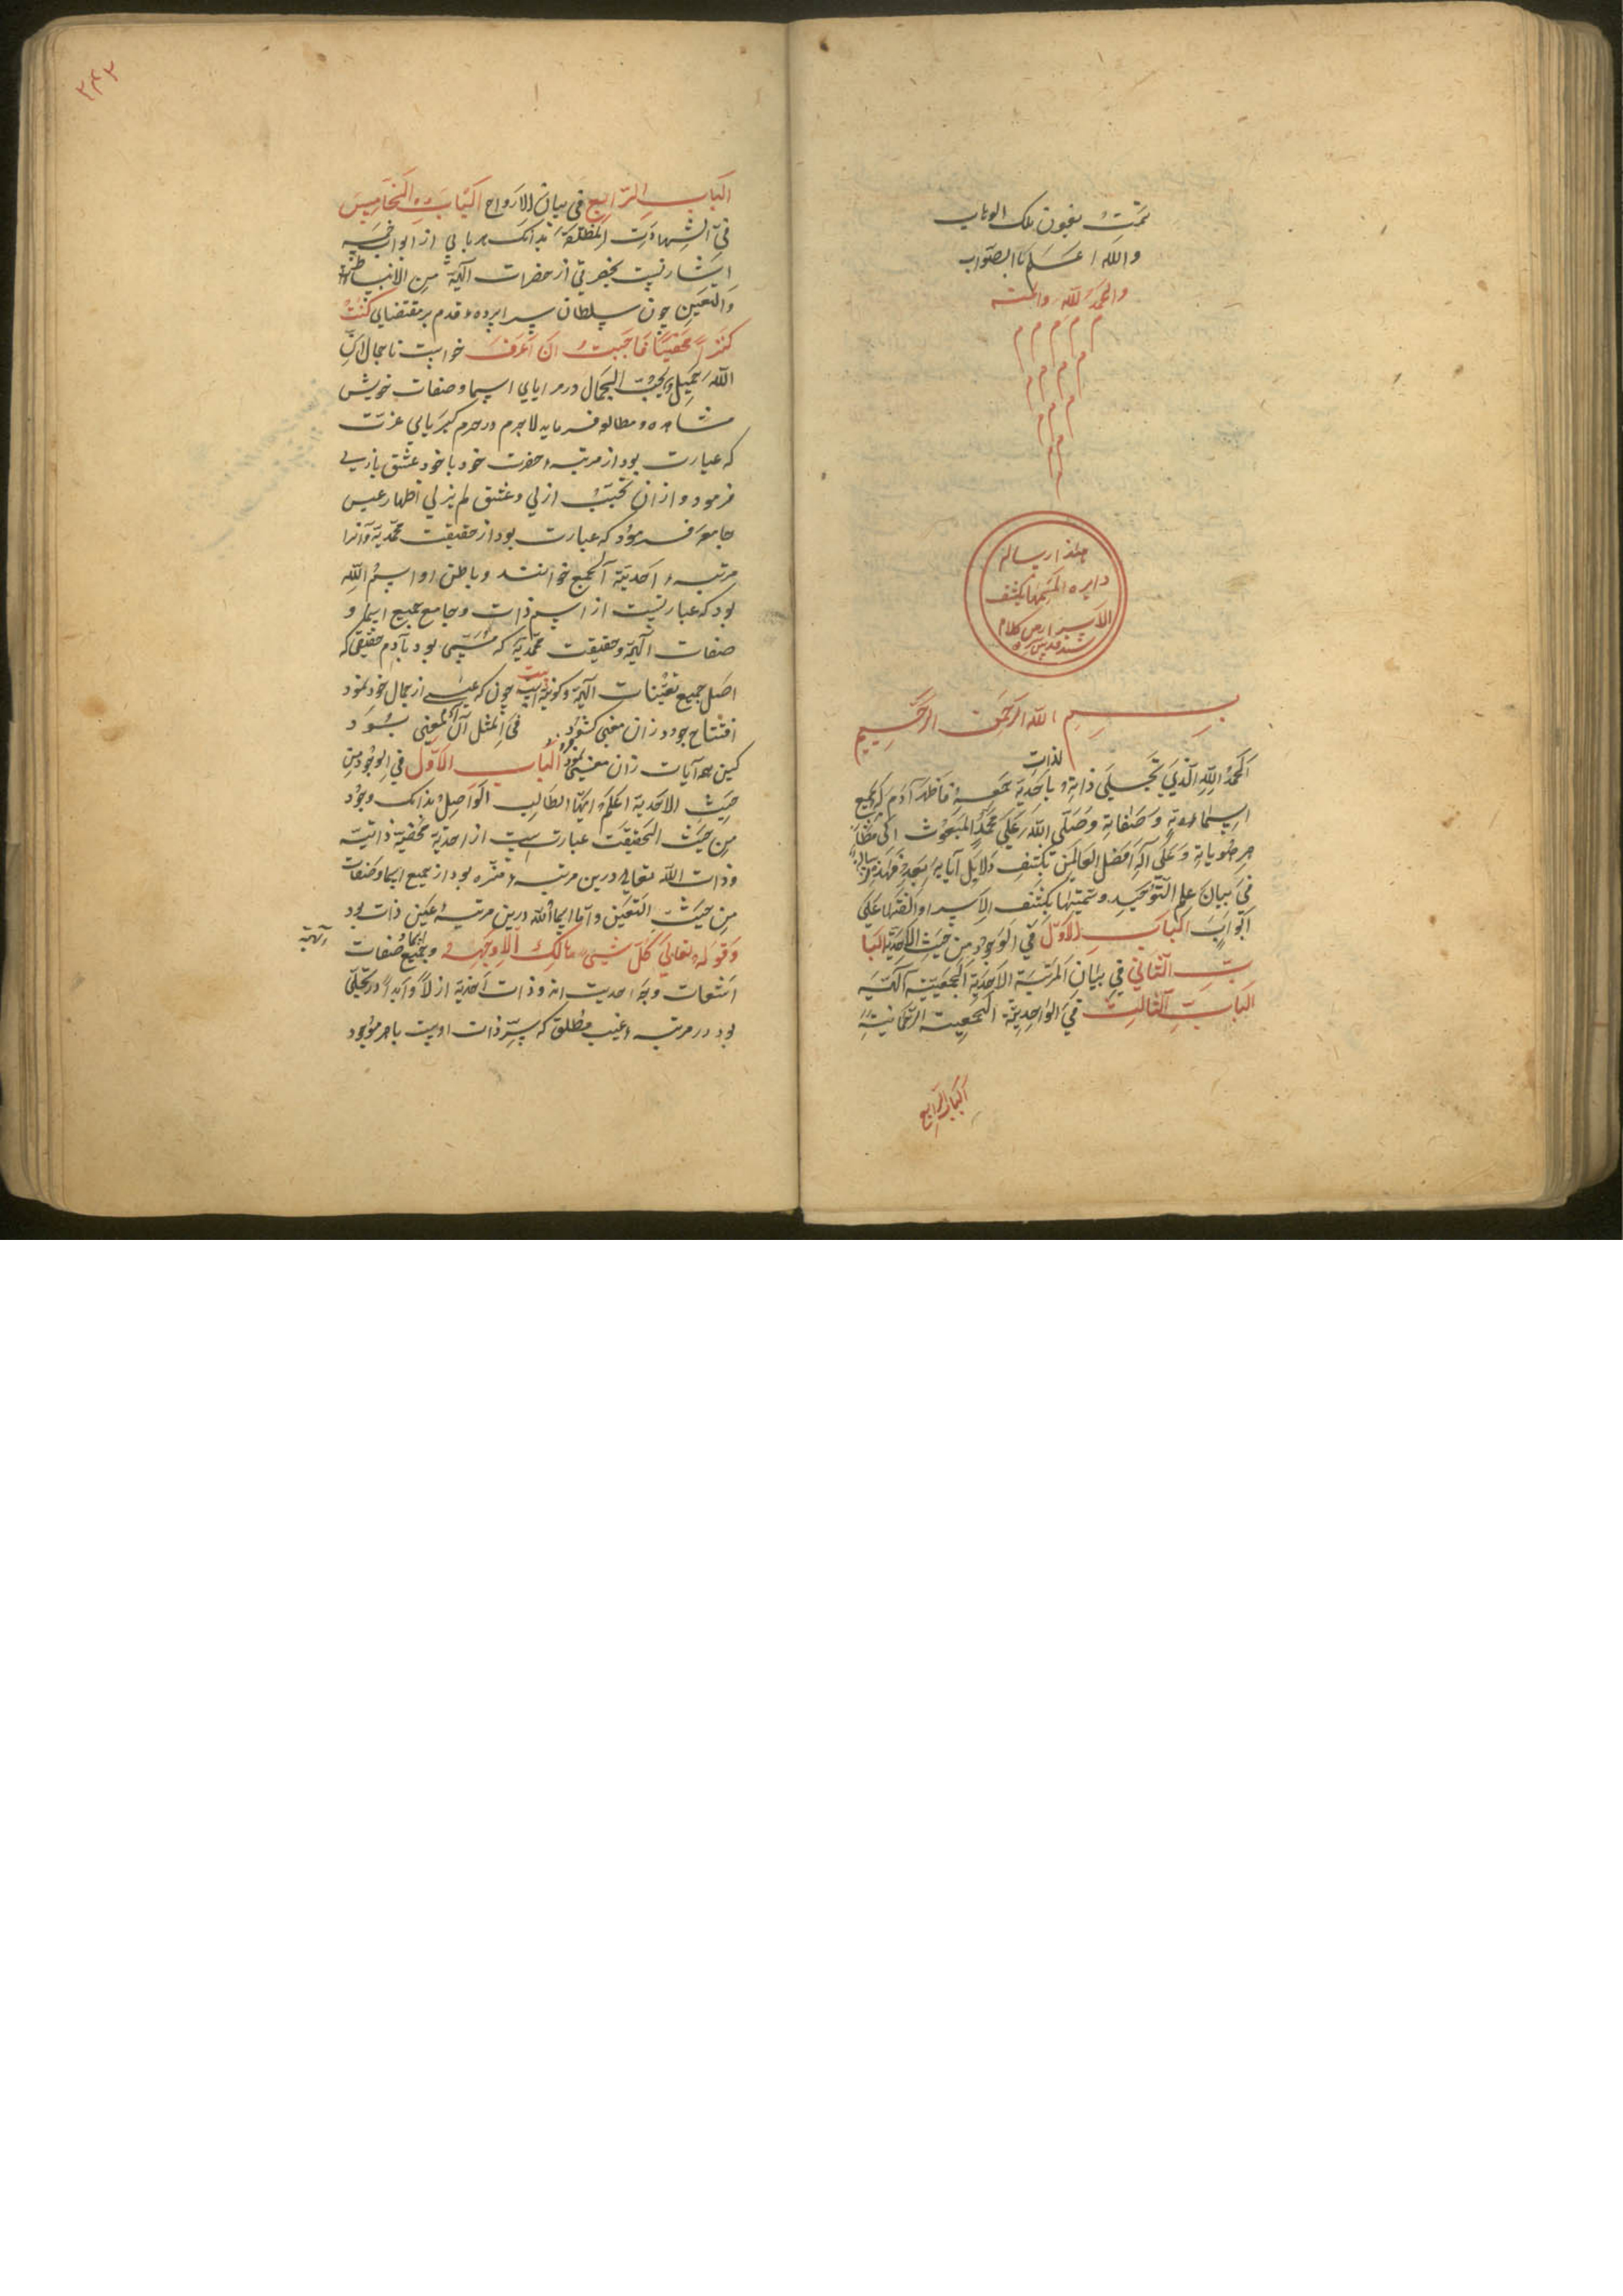 تمّتْ بعون ملک الوهاب
والله اعلم باالصّواب
والحمدُ لله والمنّه
م م م م م
م م م م
م م م
م م
م
هذا رساله
دایره المسمّها بکشف
الاسرار من کلام
سند قدس سره
بسم الله الرحمن الرحیم
لذاته
الحمدُ للهِ الّذی تجلّی ذاتهِ و باحدیّة جمعهِ فاظهر آدم له بجمیع
اسمائه وصفاتهِ وصلّی الله علی محمّدٍ المبعوث الی مظاهر
هویاتهِ وعلی آله افضل العالمین بکشف دلایل آیاته بعد فهذه رسالة
فی بیان علم التّوحید وسمّیتها بکشف الاسرار والفتها علی
ابوابٍ الباب الاوّل فی الوجود من حیث الاحدیّة البا
ب الثّانی فی بیان المرتبة الاحدیّة الجمعیّة الهیّة
الباب الثالث فی الواحدیّة الجمعیة الرّحمانیة
الباب الرابع
۲۴۲
الباب الرّابع فی بیان الارواح الباب الخامس
فی الشّهادت المطلقة بدانک هر بابی از ابواب خمسه
اشارتیست بحضرتی از حضرات الهیّة من الانبساطیّة
والتعیّن چون سلطان سراپرده قدم بر مقتضای کنتُ
کنزاً مخفیّاً فاحببتُ ان اعرف خواست تا جمال انّ
الله جمیل و یحبّ الجمال در مرایای اسما و صفات خویش
مشاهده و مطالعه فرماید لاجرم در حرم کبریایی عزّت
که عبارت بود از مرتبهٔ حضرت خود با خود عشق بازی
فرمود و از ان محبّت ازلی و عشق لم یزلی اظهار عین
جامعه فرمود که عبارت بود از حقیقت محمّدیّة و آنرا
مرتبهٔ احدیّة الجمع خوانند و باطن او اسم الله
بود که عبارتست از اسم ذات و جامع جمیع اسما و
صفات الهیّة و حقیقت محمّدیّة که مسمّی بود بآدم حقیقی که
اصل جمیع تعیّنات الهیّة و کونیّة است چون که عینی از جمال خود نمود
افتتاح جود زان معنی کشود فی المثل آن آدم معنی بود
کین همه آیات زان معنی نمود الباب الاوّل فی الوجود من
حیث الاحدیة اعلم ایّها الطالب الواصل بدانک وجود
من حیث الحقیقت عبارت است از احدیّة مخفیّة ذاتیّة
وذات الله تعالی درین مرتبهٔ منزّه بود از جمیع اسما وصفات
من حیث التعیّن و امّا اسماالله درین مرتبهٔ عین ذات بود
وقوله تعالی کلّ شیئ هالک الا وجهه و جمیع اسماء و صفات الهیّة
اشعات وجه احدیت اند و ذات احدیّة ازلاً و ابداً در تجلّی
بود در مرتبهٔ غیب مطلق که سرّ ذات اوست با هر موجود